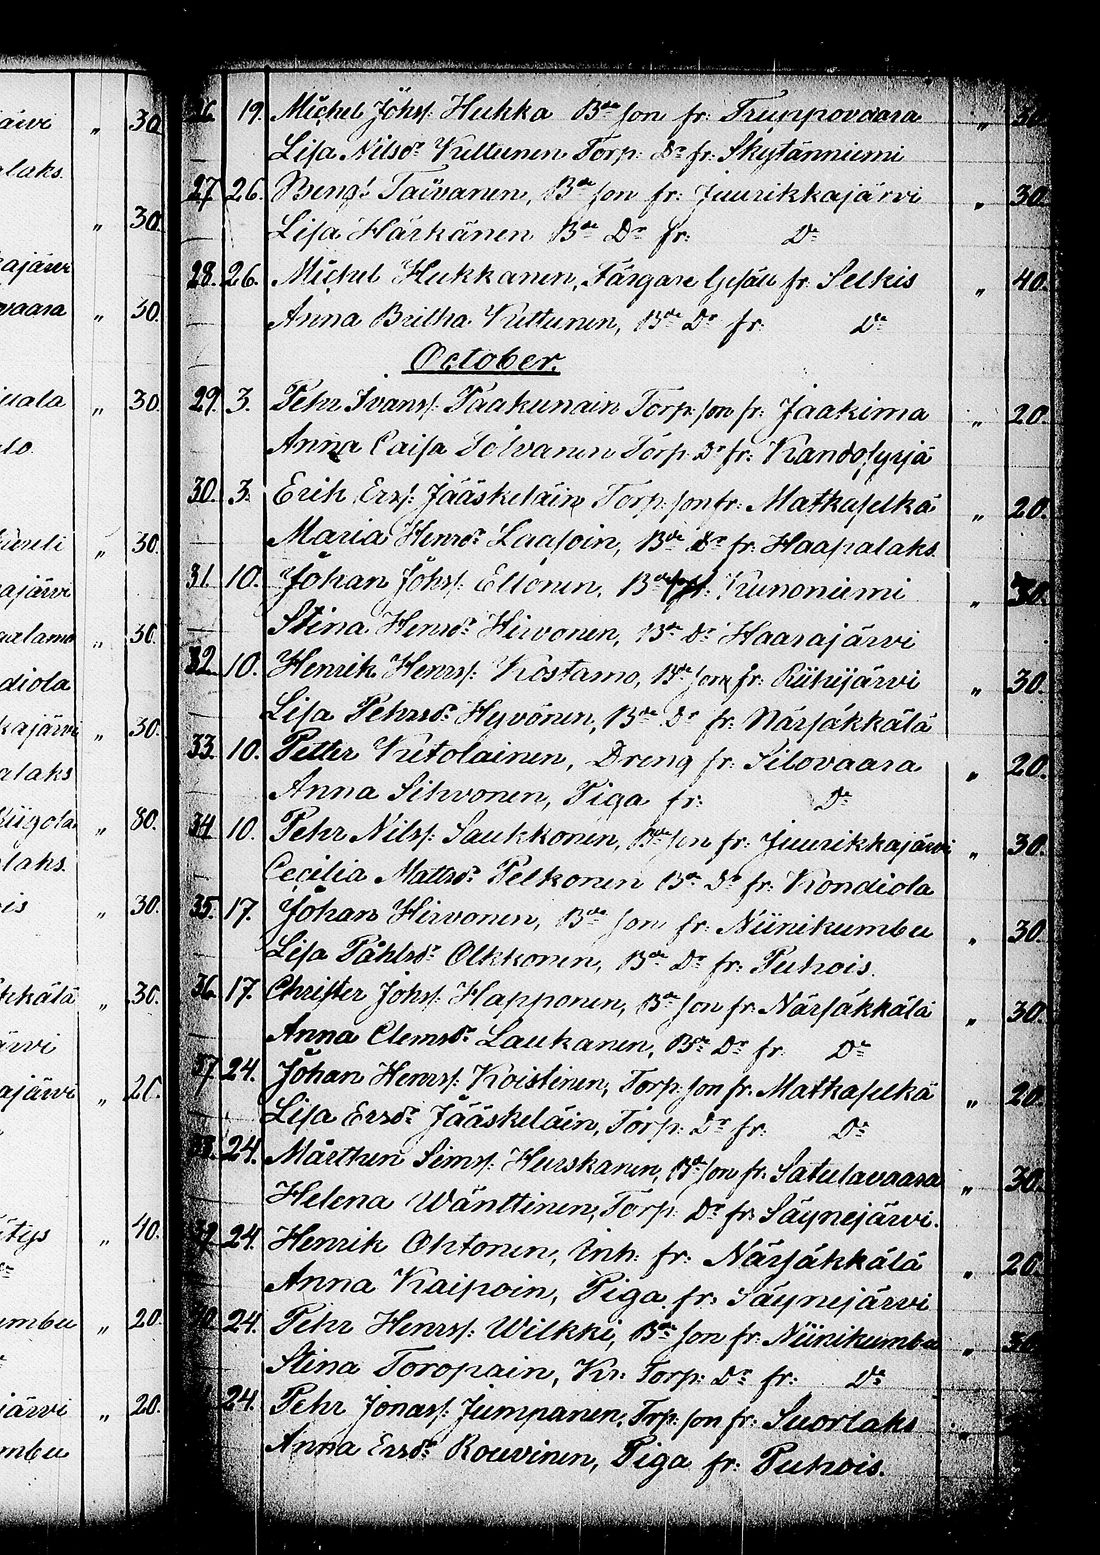 järvi " 30.
laks.
" 30.
ajärvi
vaara " 30.
" 30.
lo.
" 30.
ajärvi
" 30.
diola
kajärvi " 30.
alaks
" 80.
laks.
is " 30.
kkälä " 30.
ärvi
ajärvi " 20.
" 40.
umbu " 20.
järvi " 20.
mbu
26. 19. Michel Johsf: Hukka Bde son fr: Truppovaara " 30.
Lisa Nilsdr Kuttunen Torp: Dr fr: Skytänniemi
27 26. Bengt Taivanen, Bde son fr: Juurikkajärvi " 30.
Lisa Härkänen Bde Dr fr: Do
28. 26. Michel Hukkanen, Färgare Gesäll fr: Selkis " 40.
Anna Britha Kuttunen, Bde Dr fr: Do
October.
29. 3. Pehr Ivansf: Paakunain Torp: son fr: Jaakima " 20.
Anna Caisa Tolvanen Torp: Dr fr: Kandosyrjä
30. 3. Erik Ersf: Jääskeläin Torp: son fr: Matkaselkä " 20.
Maria Hensdr Laasoin, Bde Dr fr: Haapalaks.
31. 10. Johan Johsf: Ellonen, Bde son fr: Kunoniemi " 30.
Stina Hensdr Hirvonen, Bde Dr Haarajärvi
32. 10. Henrik Henrsf: Kostamo, Bde son fr: Riihijärvi " 30.
Lisa Pehrsdr Hyvönen, Bde Dr fr: Närsäkkälä
33. 10. Petter Kutolainen, Dreng fr: Silovaara " 20.
Anna Sihvonen, Piga fr: Do
34 10. Pehr Nilsf: Saukkonen, Bde son fr: Juurikkajärvi " 30.
Cecilia Mattsdr Pelkonen Bde Dr fr: Kondiola
35. 17. Johan Hirvonen, Bde son fr: Niinikumbu " 30.
Lisa Påhlsdr Olkkonen, Bde Dr fr: Puhois.
36. 17. Christer Johsf: Happonen, Bde son fr: Närsäkkälä " 30.
Anna Clemsdr Laukanen, Bde Dr fr: Do
37. 24. Johan Henrsf: Koistinen, Torp: son fr: Matkaselkä " 20.
Lisa Ersdr Jääskeläin, Torp: Dr fr: Do
38. 24. Mårthen Simsf: Hurskanen, Bde son fr: Satulavaara " 30.
Helena Wänttinen, Torp: Dr fr: Säynejärvi.
39. 24. Henrik Ohtonen, Inh: fr: Närsäkkälä " 20.
Anna Kaipoin, Piga fr: Säynejärvi
40. 24. Pehr Henrsf: Wilkki, Bde son fr: Niinikumbu " 30.
Stina Toropain, Kr: Torp: Dr fr: Do
24. Pehr Jonasf: Jumpanen, Trp: son fr: Suorlaks "
Anna Ersdr Rouvinen, Piga fr: Puhois.